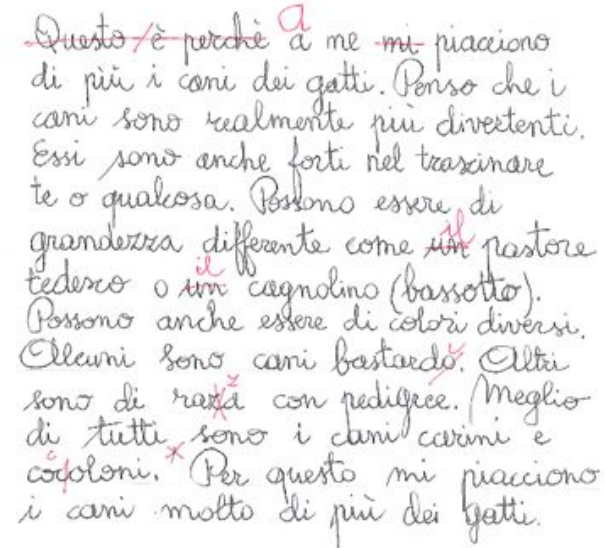 Questo è perchè A a me mi piacciono
di più i cani dei gatti. Penso che i
cani sono realmente più divertenti.
Essi sono anche forti nel trascinare
te o qualcosa. Possono essere di
grandezza differente come un il pastore
tedesco o un il cagnolino (bassotto).
Possono anche essere di colori diversi.
Alcuni sono cani bastardo. Altri
sono di raza z con pedigree. Meglio
di tutti sono i cani carini e
coccoloni. * Per questo mi piacciono
i cani molto di più dei gatti.